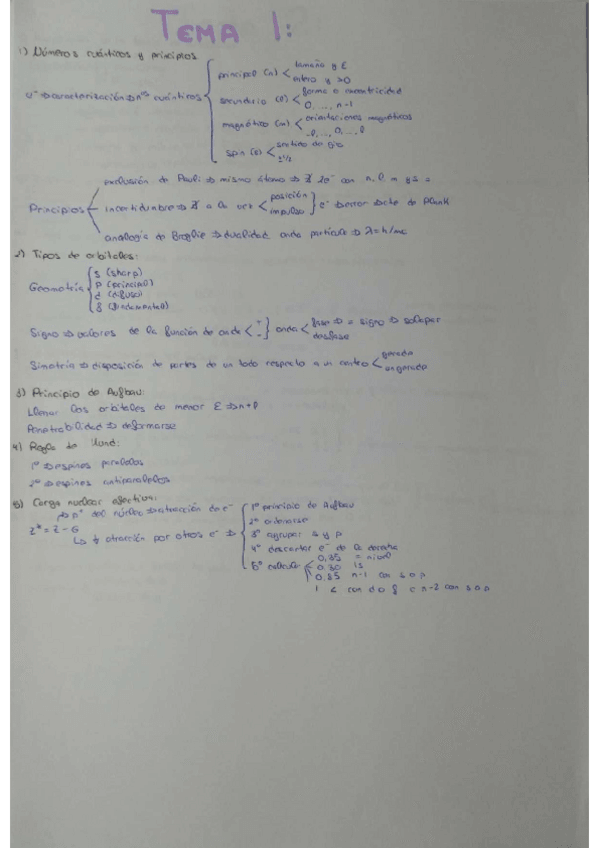 TEMA 1:
1) Números cuánticos y principios
e⁻ ⇒ caracterización ⇒ nos cuánticos
principal (n) < tamaño y E
entero y >0
secundario (l) < forma o excentricidad
0, ..., n-1
magnético (m) < orientaciones magnéticas
-l, ..., 0, ..., l
spin (s) < sentido de giro
±1/2
Principios
exclusión de Pauli ⇒ mismo átomo ⇒ ∄ 2e⁻ con n, l, m y s =
incertidumbre ⇒ ∄ a la vez < posición
impulso } e⁻ ⇒ error ⇒ cte de Planck
analogía de Broglie ⇒ dualidad onda partícula ⇒ λ=h/mc
2) Tipos de orbitales:
Geometría
s (sharp)
p (principal)
d (difuso)
f (fundamental)
Signo ⇒ valores de la función de onda < +
- } onda < fase ⇒ = signo ⇒ solapar
desfase
Simetría ⇒ disposición de partes de un todo respecto a un centro < gerada
ungerada
3) Principio de Aufbau:
Llenar los orbitales de menor E ⇒ n+l
Penetrabilidad ⇒ deformarse
4) Regla de Hund:
1º ⇒ espines paralelos
2º ⇒ espines antiparalelos
5) Carga nuclear efectiva:
p⁺ del núcleo ⇒ atracción de e⁻
Z* = Z - G
↳ atracción por otros e⁻ ⇒
1º principio de Aufbau
2º ordenarse
3º agrupar s y p
4º descartar e⁻ de la derecha
5º calcular
0,35 = nivel
0.30 1s
0,85 n-1 con s o p
1 < con d o f o n-2 con s o p